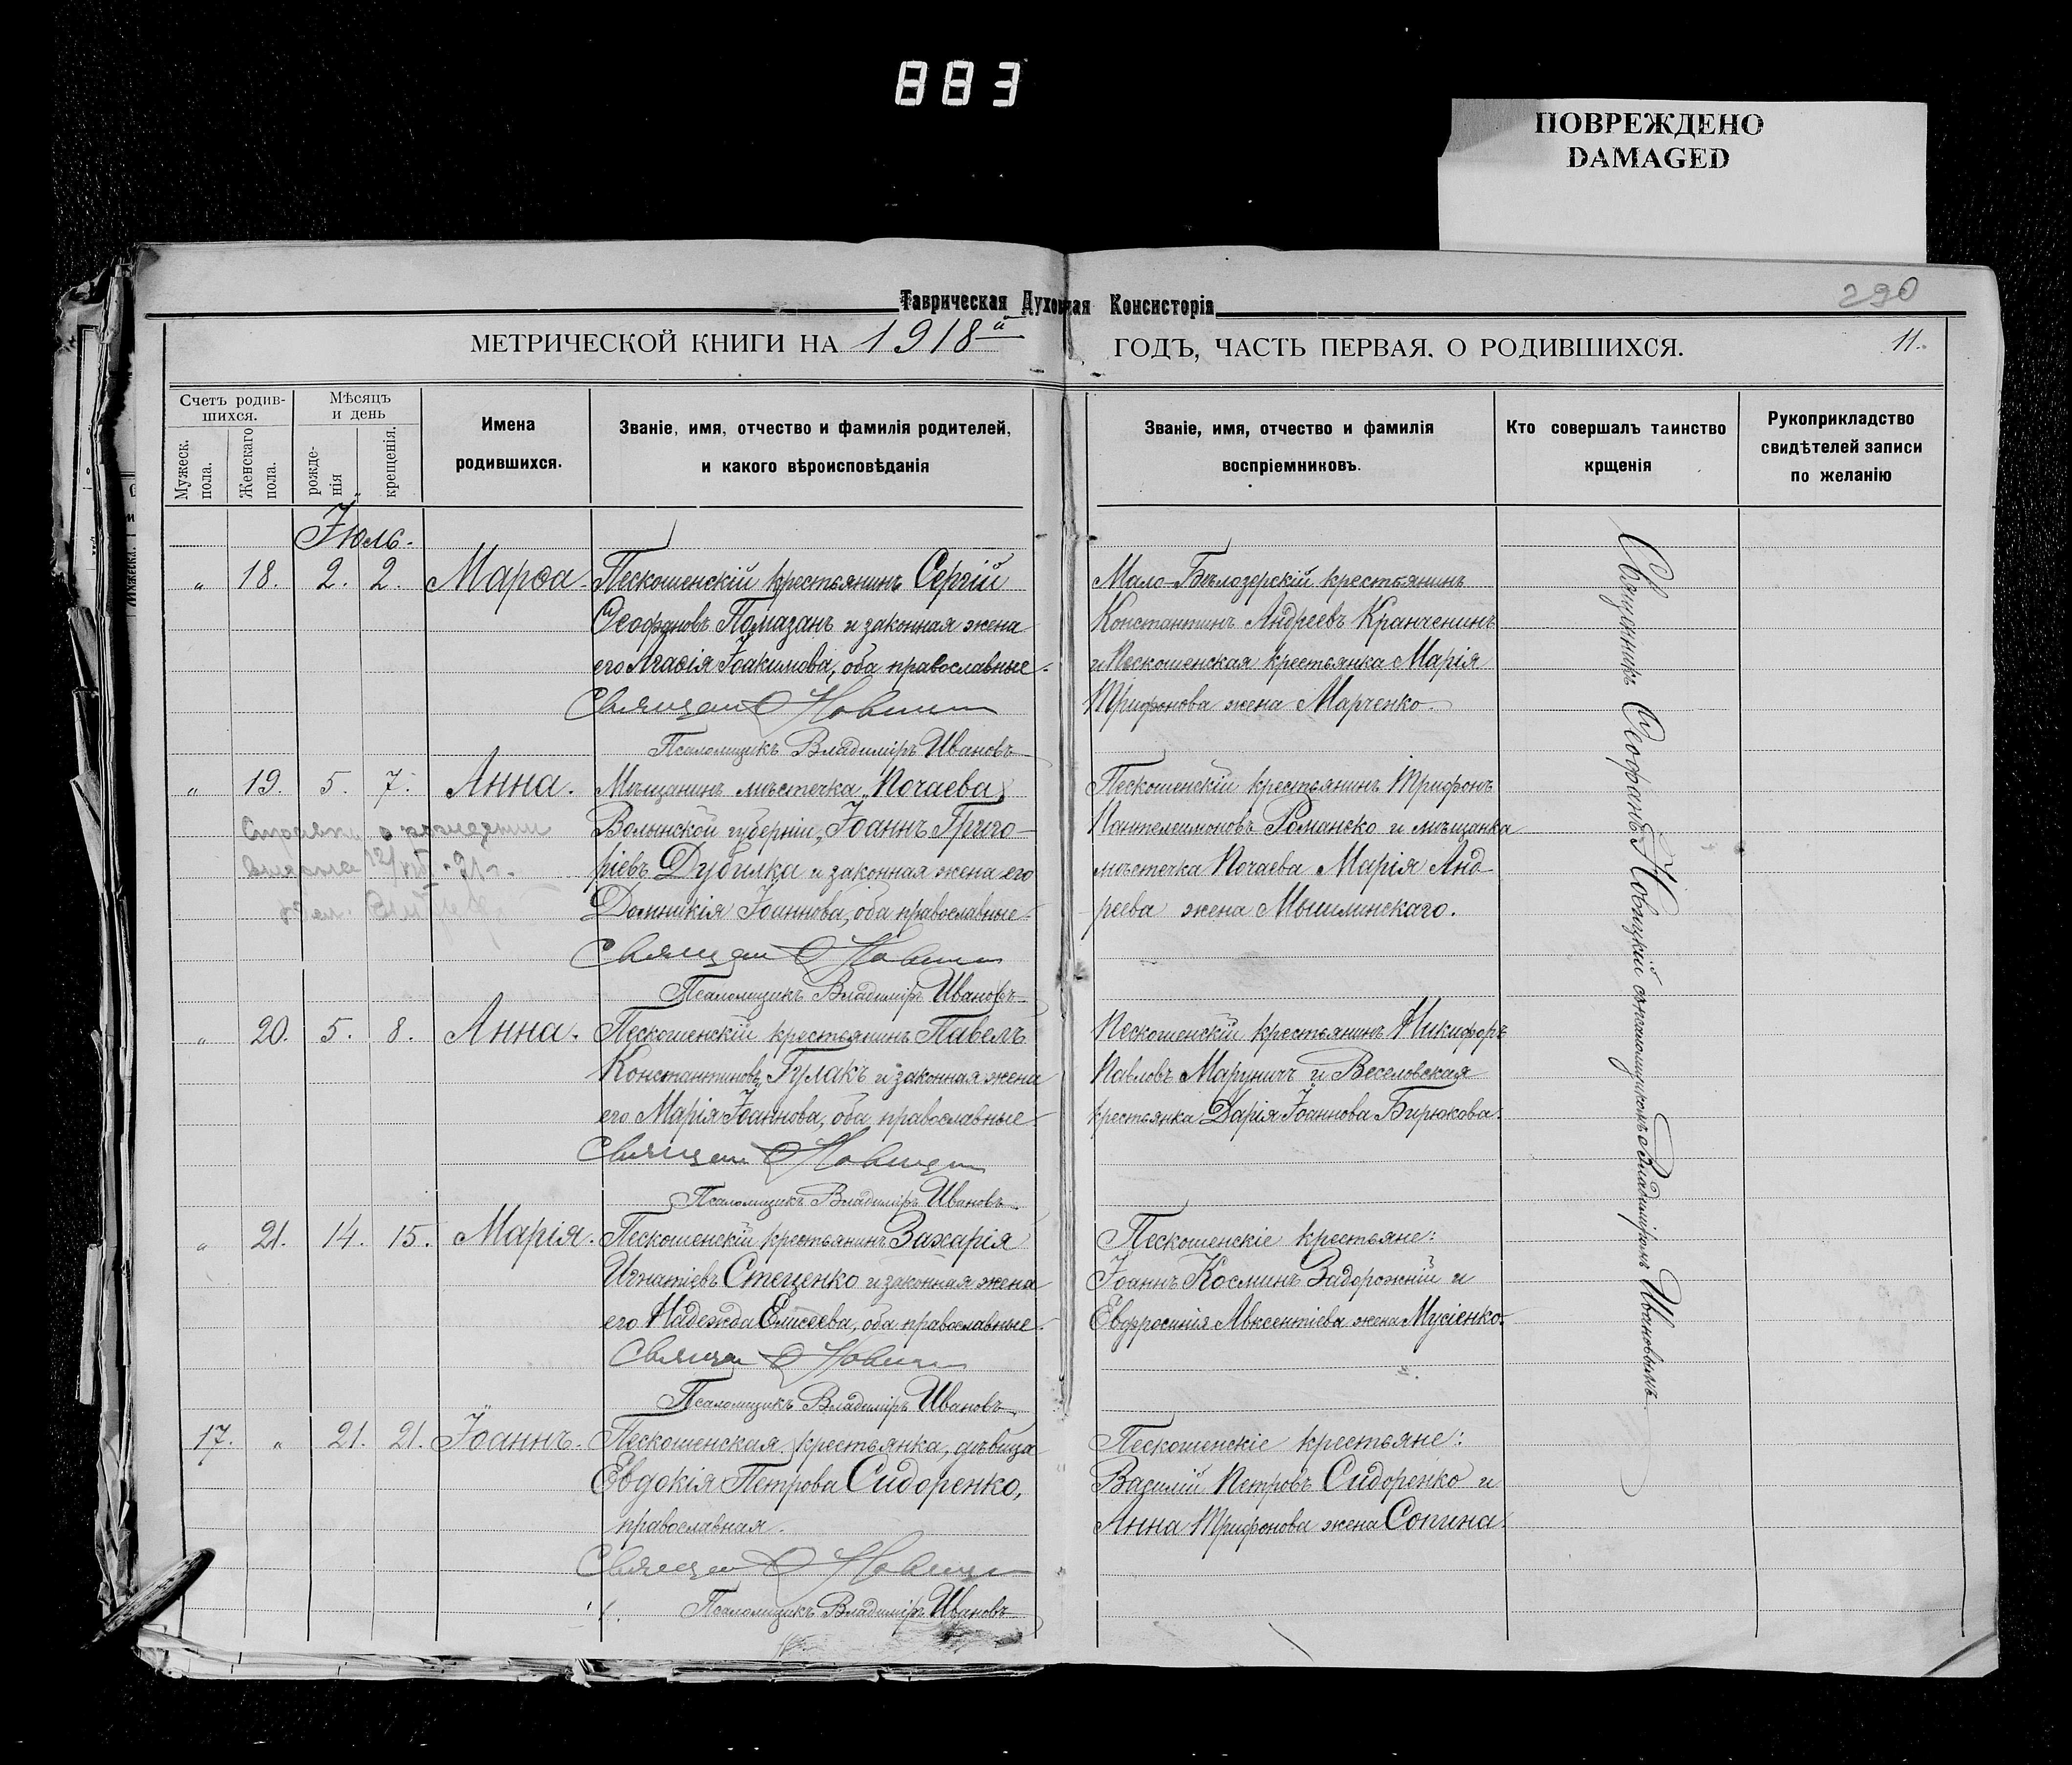 883
ПОВРЕЖДЕНО
DAMAGED
290
Таврическая Духовная Консисторія
МЕТРИЧЕСКОЙ КНИГИ НА 1918й ГОДЪ, ЧАСТЬ ПЕРВАЯ. О РОДИВШИХСЯ.
11.
Счетъ родив-
шихся.
Мужеск.
пола.
Женскаго
пола.
Мѣсяцъ
и день
рожде-
нія
крещенія.
Имена
родившихся.
Званіе, имя, отчество и фамилія родителей,
и какого вѣроисповѣданія
Званіе, имя, отчество и фамилія
воспріемниковъ.
Кто совершалъ таинство
крщенія
Рукоприкладство
свидѣтелей записи
по желанію
Іюль.
„ 18. 2. 2. Марѳа.
Пескошенскій крестьянинъ Сергій
Ѳеофановъ Помазанъ и законная жена
его Агаѳія Іоакимова, оба православные.
Священ Ѳ Новицкій
Псаломщикъ Владиміръ Ивановъ
Мало-Бѣлозерскій крестьянинъ
Константинъ Андреевъ Кранченинъ
и Пескошенская крестьянка Марія
Трифонова жена Марченко.
„ 19. 5. 7. Анна.
Мѣщанинъ мѣстечка „Почаева,
Волынской губерніи„ Іоаннъ Григо-
ріевъ Дубилка и законная жена его
Домникія Іоаннова, оба православные.
Священ Ѳ Новицкій
Псаломщикъ Владиміръ Ивановъ
Пескошенскій крестьянинъ Трифонъ
Пантелеимоновъ Романско и мѣщанка
мѣстечка Почаева Марія Анд-
реева жена Мышлинскаго.
„ 20. 5. 8. Анна.
Пескошенскій крестьянинъ Павелъ
Константиновъ Гулакъ и законная жена
его Марія Іоаннова, оба православные.
Священ Ѳ Новицкій
Псаломщикъ Владиміръ Ивановъ.
Пескошенскій крестьянинъ Никифоръ
Павловъ Марунич и Веселовская
крестьянка Дарія Іоаннова Бирюкова.
„ 21. 14. 15. Марія.
Пескошенскій крестьянинъ Захарія
Игнатіевъ Стеценко и законная жена
его Надежда Елисеева, оба православные.
Священ Ѳ Новицкій
Псаломщикъ Владиміръ Ивановъ.
Пескошенскіе крестьяне:
Іоаннъ Косминъ Задорожній и
Евфросинія Авксентіева жена Мусіенко.
17. „ 21. 21. Іоаннъ.
Пескошенская крестьянка, дѣвица
Евдокія Петрова Сидоренко,
православная.
Священ Ѳ Новицкій
Псаломщикъ Владиміръ Ивановъ
Пескошенскіе крестьяне:
Василій Петровъ Сидоренко и
Анна Трифонова жена Сопина.
Священникъ Ѳеофанъ Новицкій съ псаломщикомъ Владиміромъ Ивановымъ